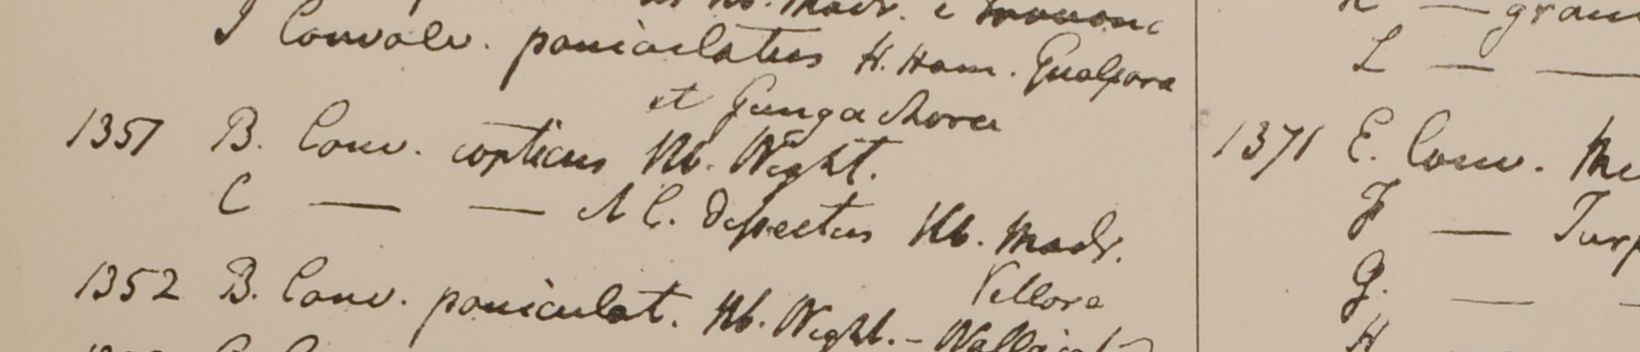 Hb. Madr. e
I Convolv. paniculatus H. Ham. Gualpara
et Gungachora
1351 B. Conv. copticus Hb. Wight.
C — — & C. dissectus Hb. Madr.
Vellore
1352 B. Conv. paniculat. Hb. Wight. –
K — gram
L — —
1371 E. Conv.
F — Turp
G. — —
H